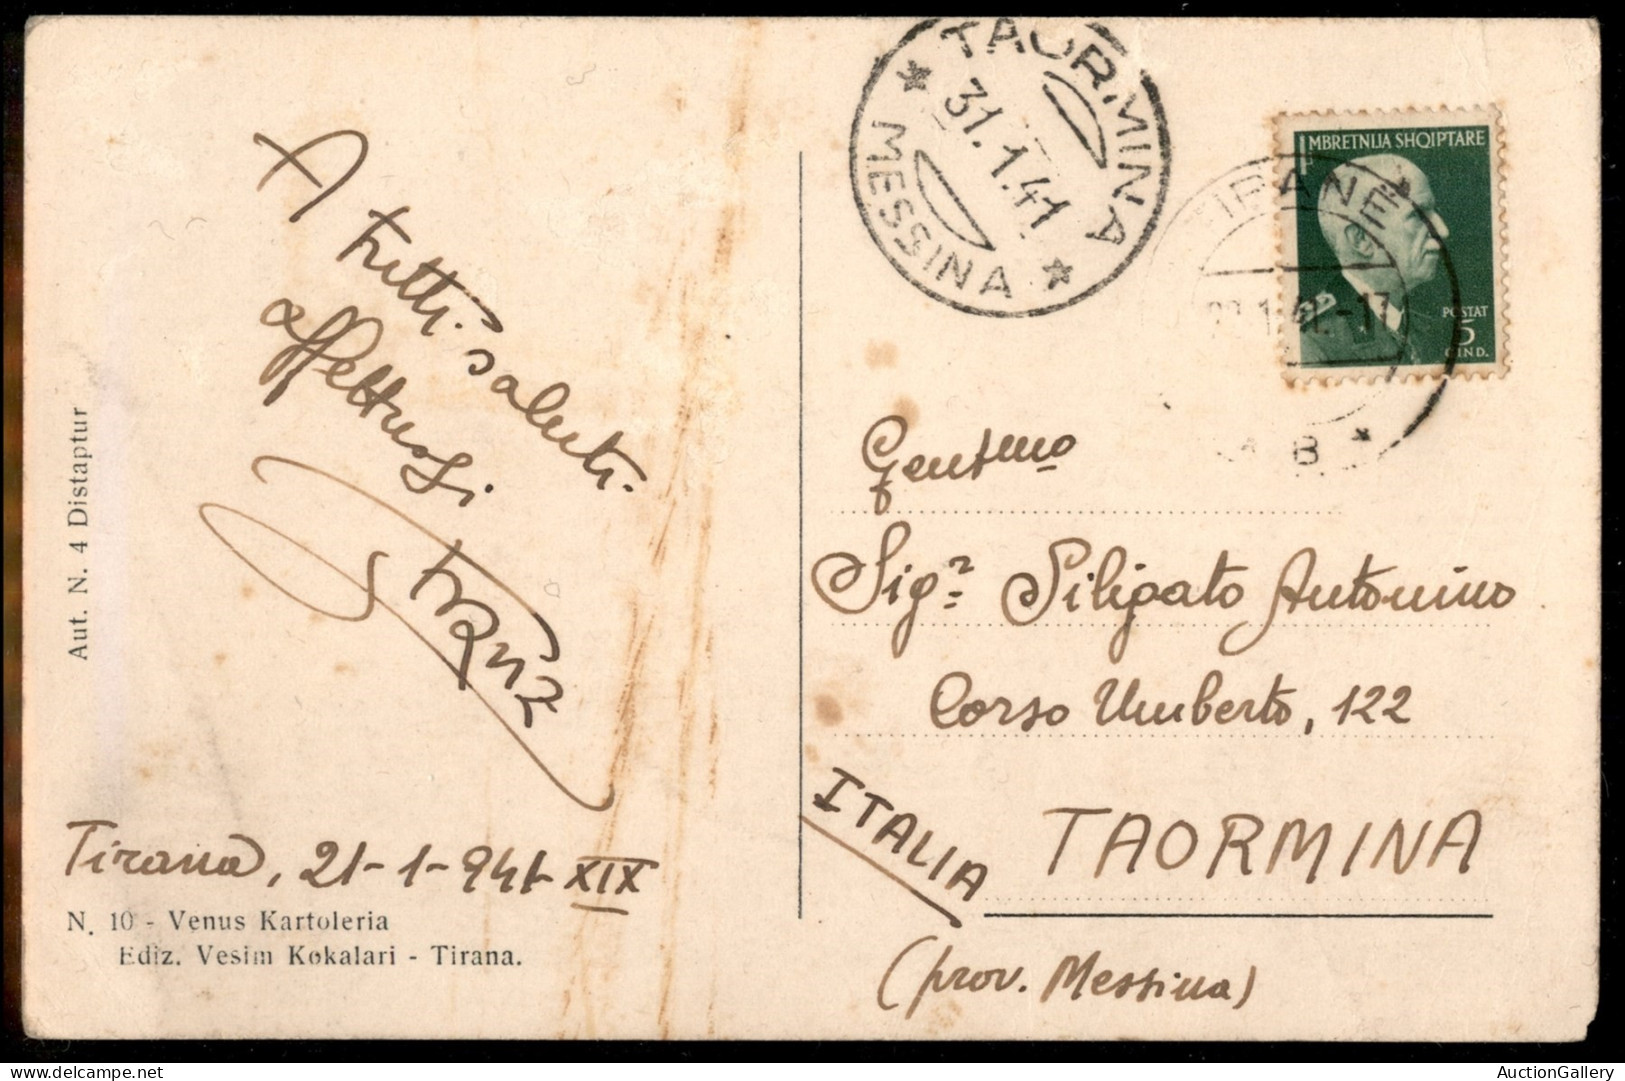 A tutti saluti
affettuosi.
Tirana, 21-1-941 XIX
N. 10 - Venus Kartoleria
Ediz. Vesim Kokalari - Tirana.
Aut. N. 4 Distaptur
TAORMINA
31.1.41
* MESSINA *
MBRETNIJA SHQIPTARE
POSTAT
5
QIND.
TIRANË
.1.41.-17
B *
Gentsmo
Sigr Siligato Antonino
Corso Umberto, 122
ITALIA
TAORMINA
(prov. Messina)
AuctionGallery